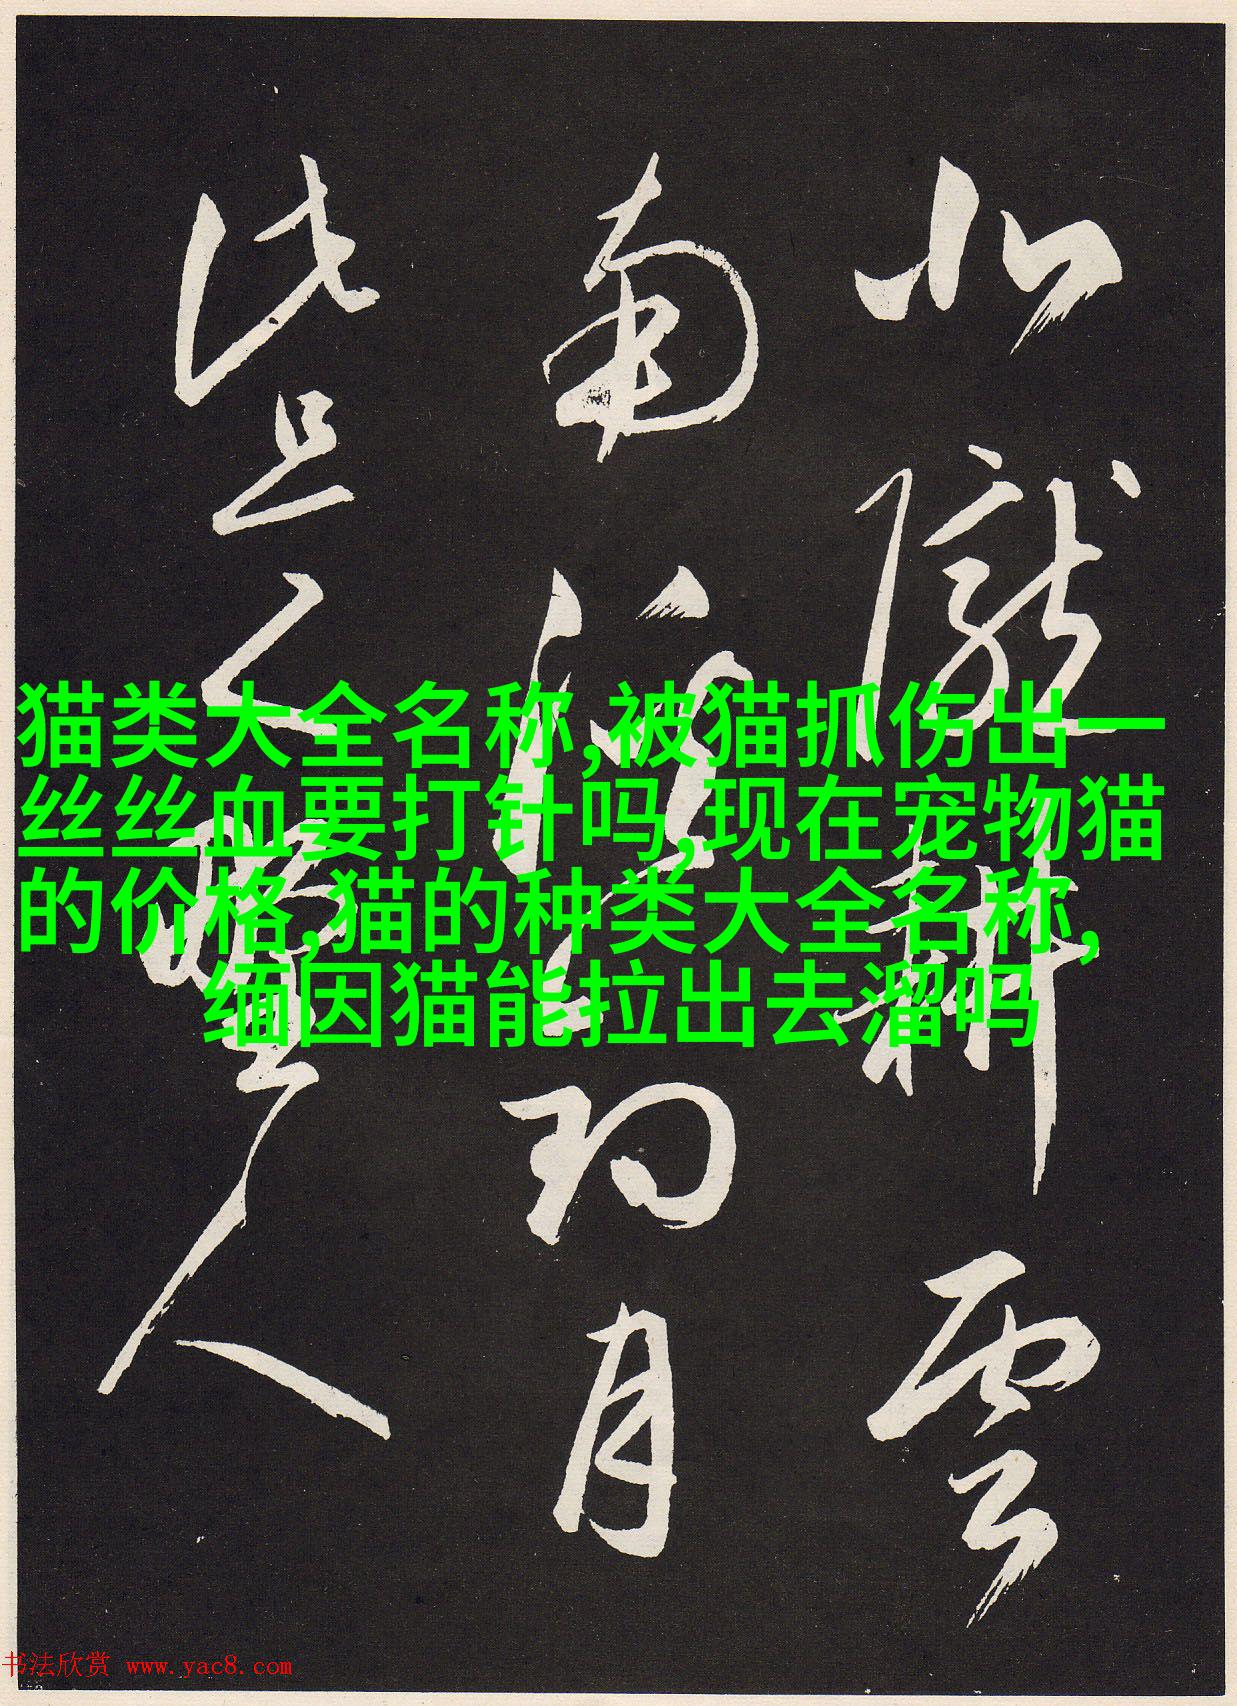 北隴耕雲
南溪釣月
此是野人
猫类大全名称,被猫抓伤出一
丝丝血要打针吗,现在宠物猫
的价格,猫的种类大全名称,
缅因猫能拉出去溜吗
书法欣赏 www.yac8.com